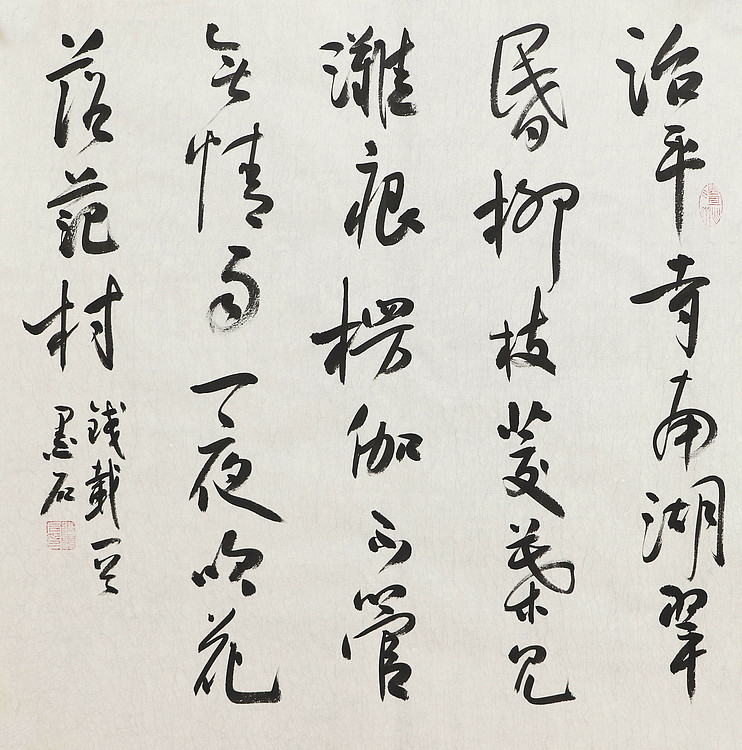 治平寺南湖翠
昏柳枝菱葉見
灘痕楞伽不管
無情雨一夜吹花
落范村
錢載一首
墨石